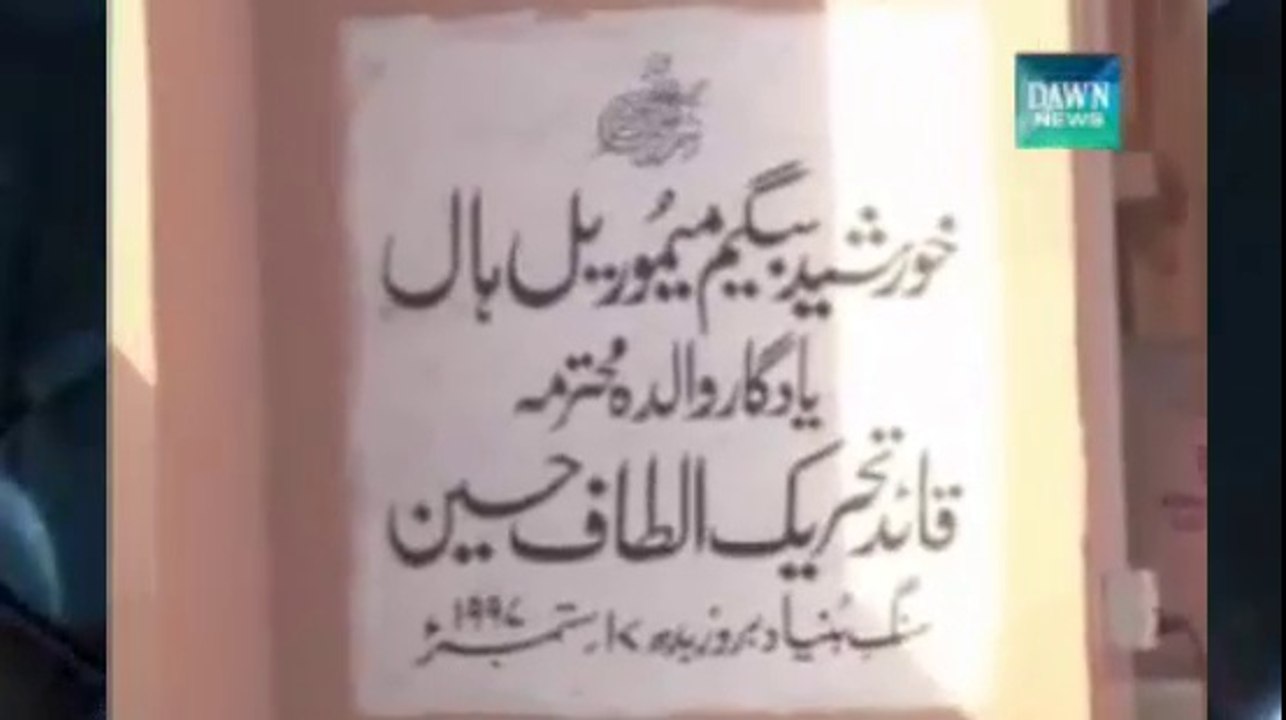 خورشید بیگم میموریل ہال
یادگار والدہ محترمہ
قائد تحریک الطاف حسین
سنگ بنیاد بروز بدھ ۱۷ ستمبر ۱۹۹۷
DAWN
NEWS